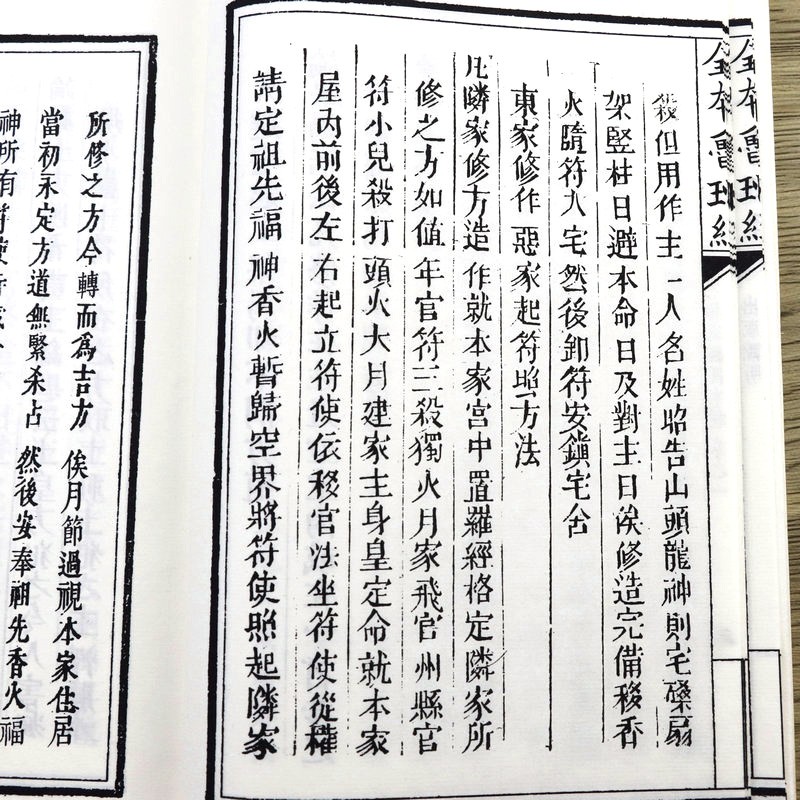 全本魯班經
全本魯班經
殺但用作主一人名姓昭告山頭龍神則宅磉扇
架竪柱日避本命日及對主日俟修造完備移香
火隨符入宅然後卸符安鎮宅舍
東家修作惡家起符照方法
凡隣家修方造作就本家宮中置羅經格定隣家所
修之方如值年官符三殺獨火月家飛官州縣官
符小兒殺打頭火大月建家主身皇定命就本家
屋內前後左右起立符使依移官法坐符使從權
請定祖先福神香火暫歸空界將符使照起隣家
所修之方令轉而為吉方俟月節過視本家住居
當初永定方道無緊杀占然後安奉祖先香火福
神所有符使